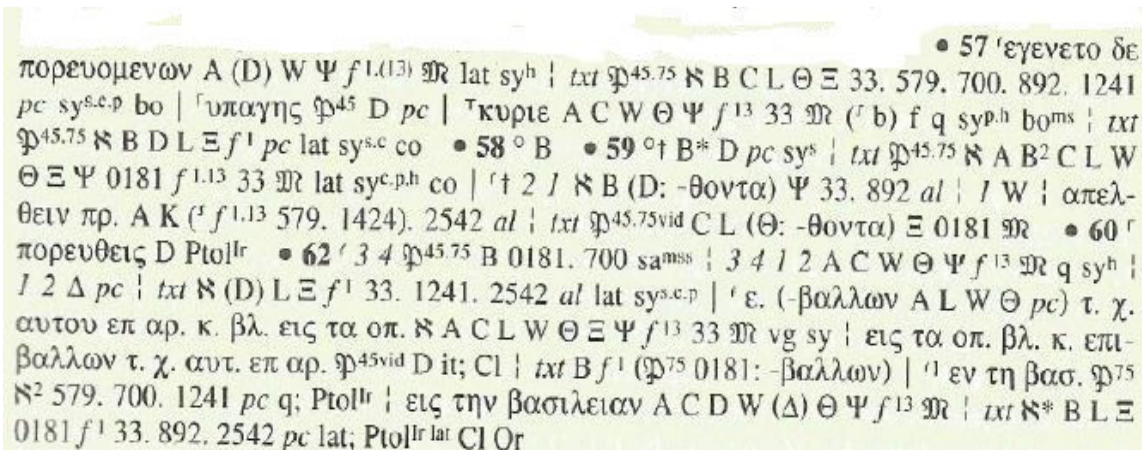 • 57 ⸂εγενετο δε
πορευομενων A (D) W Ψ f 1.(13) 𝔐 lat syh ¦ txt 𝔓45.75 ℵ B C L Θ Ξ 33. 579. 700. 892. 1241
pc sys.c.p bo | ⸀υπαγης 𝔓45 D pc | ⸆κυριε A C W Θ Ψ f 13 33 𝔐 (⸉ b) f q syp.h boms ¦ txt
𝔓45.75 ℵ B D L Ξ f 1 pc lat sys.c co • 58 ° B • 59 °† B* D pc sys ¦ txt 𝔓45.75 ℵ A B2 C L W
Θ Ξ Ψ 0181 f 1.13 33 𝔐 lat syc.p.h co | ⸂† 2 1 ℵ B (D: -θοντα) Ψ 33. 892 al ¦ 1 W ¦ απελ-
θειν πρ. A K (⸉ f 1.13 579. 1424). 2542 al ¦ txt 𝔓45.75vid C L (Θ: -θοντα) Ξ 0181 𝔐 • 60 ⸀
πορευθεις D PtolIr • 62 ⸂ 3 4 𝔓45.75 B 0181. 700 samss ¦ 3 4 1 2 A C W Θ Ψ f 13 𝔐 q syh ¦
1 2 Δ pc ¦ txt ℵ (D) L Ξ f 1 33. 1241. 2542 al lat sys.c.p | ⸂ ε. (-βαλλων A L W Θ pc) τ. χ.
αυτου επ αρ. κ. βλ. εις τα οπ. ℵ A C L W Θ Ξ Ψ f 13 33 𝔐 vg sy ¦ εις τα οπ. βλ. κ. επι-
βαλλων τ. χ. αυτ. επ αρ. 𝔓45vid D it; Cl ¦ txt B f 1 (𝔓75 0181: -βαλλων) | ⸂1 εν τη βασ. 𝔓75
ℵ2 579. 700. 1241 pc q; PtolIr ¦ εις την βασιλειαν A C D W (Δ) Θ Ψ f 13 𝔐 ¦ txt ℵ* B L Ξ
0181 f 1 33. 892. 2542 pc lat; PtolIr lat Cl Or